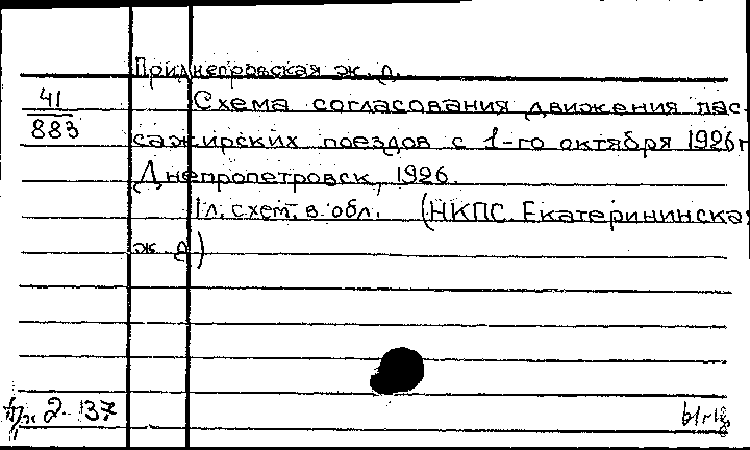 Приднепровская ж. д.
41
883
Схема согласования движения пас-
сажирских поездов с 1-го октября 1926 г
Днепропетровск, 1926.
1 л. схем. в обл. (НКПС. Екатерининская
ж. д.)
2. 137